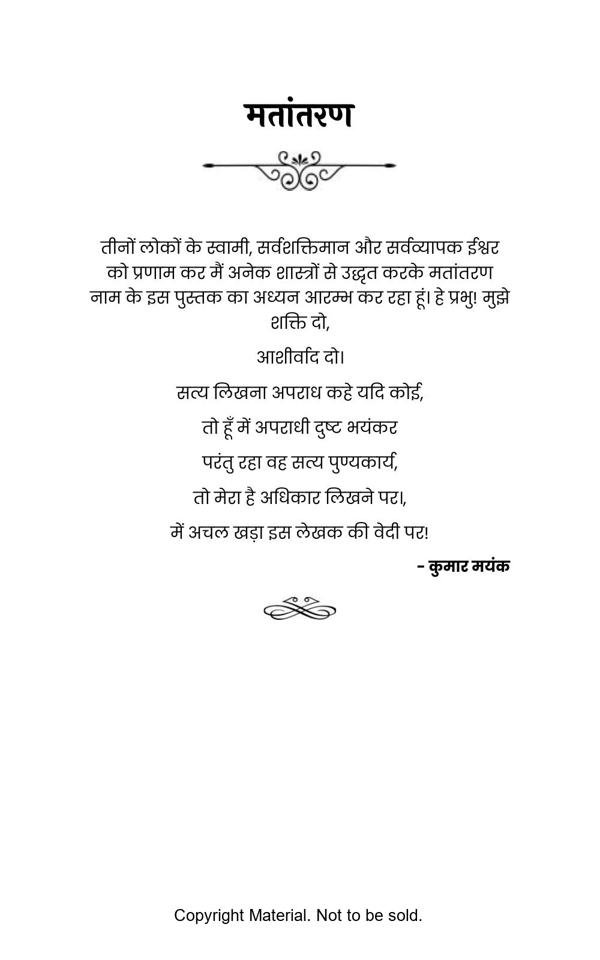 मतांतरण
तीनों लोकों के स्वामी, सर्वशक्तिमान और सर्वव्यापक ईश्वर
को प्रणाम कर मैं अनेक शास्त्रों से उद्धृत करके मतांतरण
नाम के इस पुस्तक का अध्यन आरम्भ कर रहा हूं। हे प्रभु! मुझे
शक्ति दो,
आशीर्वाद दो।
सत्य लिखना अपराध कहे यदि कोई,
तो हूँ में अपराधी दुष्ट भयंकर
परंतु रहा वह सत्य पुण्यकार्य,
तो मेरा है अधिकार लिखने पर।,
में अचल खड़ा इस लेखक की वेदी पर!
- कुमार मयंक
Copyright Material. Not to be sold.